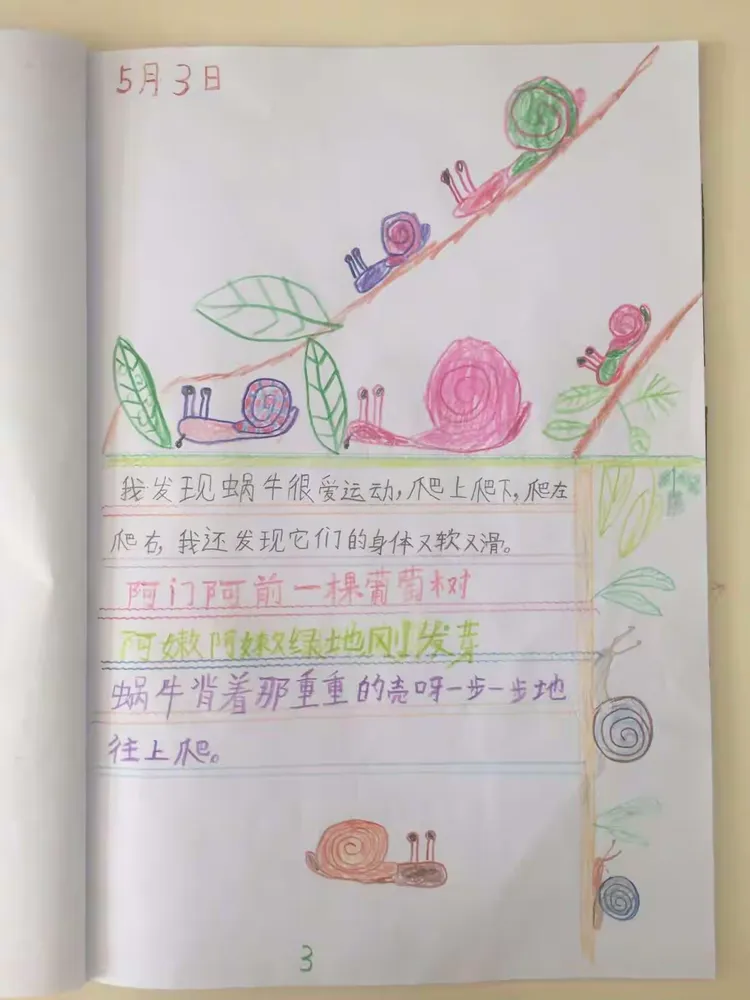 5月3日
我发现蜗牛很爱运动,爬上爬下,爬左
爬右,我还发现它们的身体又软又滑。
阿门阿前一棵葡萄树
阿嫩阿嫩绿地刚发芽
蜗牛背着那重重的壳呀一步一步地
往上爬。
3